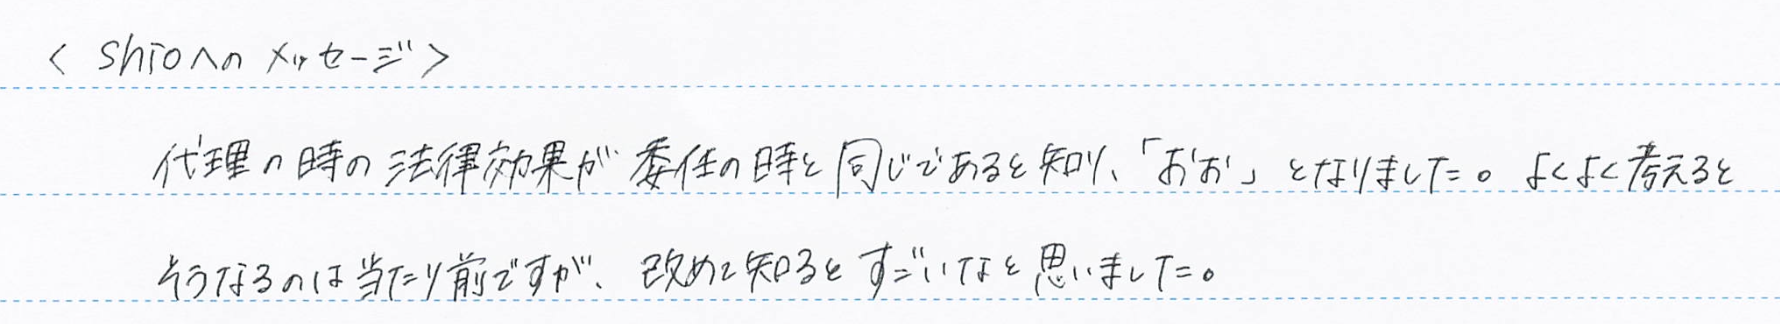 < Shioへのメッセージ>
代理の時の法律効果が委任の時と同じであると知り、「おお」となりました。よくよく考えると
そうなるのは当たり前ですが、改めて知るとすごいなと思いました。